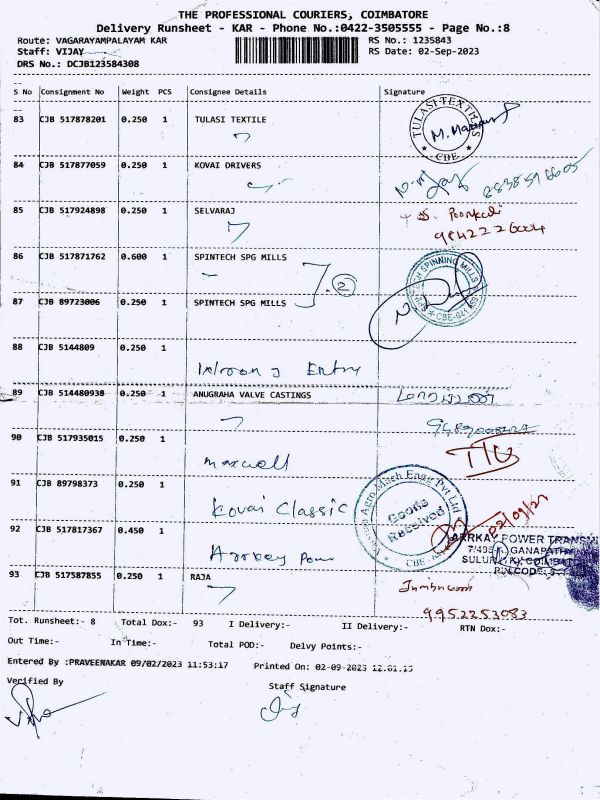 THE PROFESSIONAL COURIERS, COIMBATORE
Delivery Runsheet - KAR - Phone No.:0422-3505555 - Page No.:8
Route: VAGARAYAMPALAYAM KAR RS No.: 1235843
Staff: VIJAY RS Date: 02-Sep-2023
DRS No.: DCJB123584308
S No Consignment No Weight PCS Consignee Details Signature
83 CJB 517878201 0.250 1 TULASI TEXTILE TULASI TEXTILES CBE
84 CJB 517877059 0.250 1 KOVAI DRIVERS
85 CJB 517924898 0.250 1 SELVARAJ
86 CJB 517871762 0.600 1 SPINTECH SPG MILLS 2 SPINNING MILLS
87 CJB 89723006 0.250 1 SPINTECH SPG MILLS
88 CJB 5144809 0.250 1
Entry
89 CJB 514480938 0.250 1 ANUGRAHA VALVE CASTINGS
90 CJB 517935015 0.250 1
maxwell
91 CJB 89798373 0.250 1 Agro Mach Engg Pvt Ltd
Kovai Classic Goods Received CBE
92 CJB 517817367 0.450 1
AARKAY POWER TRANSMI
GANAPATHY
SULUR
PIN CODE
93 CJB 517587855 0.250 1 RAJA
9952253083
Tot. Runsheet:- 8 Total Dox:- 93 I Delivery:- II Delivery:- RTN Dox:-
Out Time:- In Time:- Total POD:- Delvy Points:-
Entered By :PRAVEENAKAR 09/02/2023 11:53:17 Printed On: 02-09-2023
Verified By Staff Signature